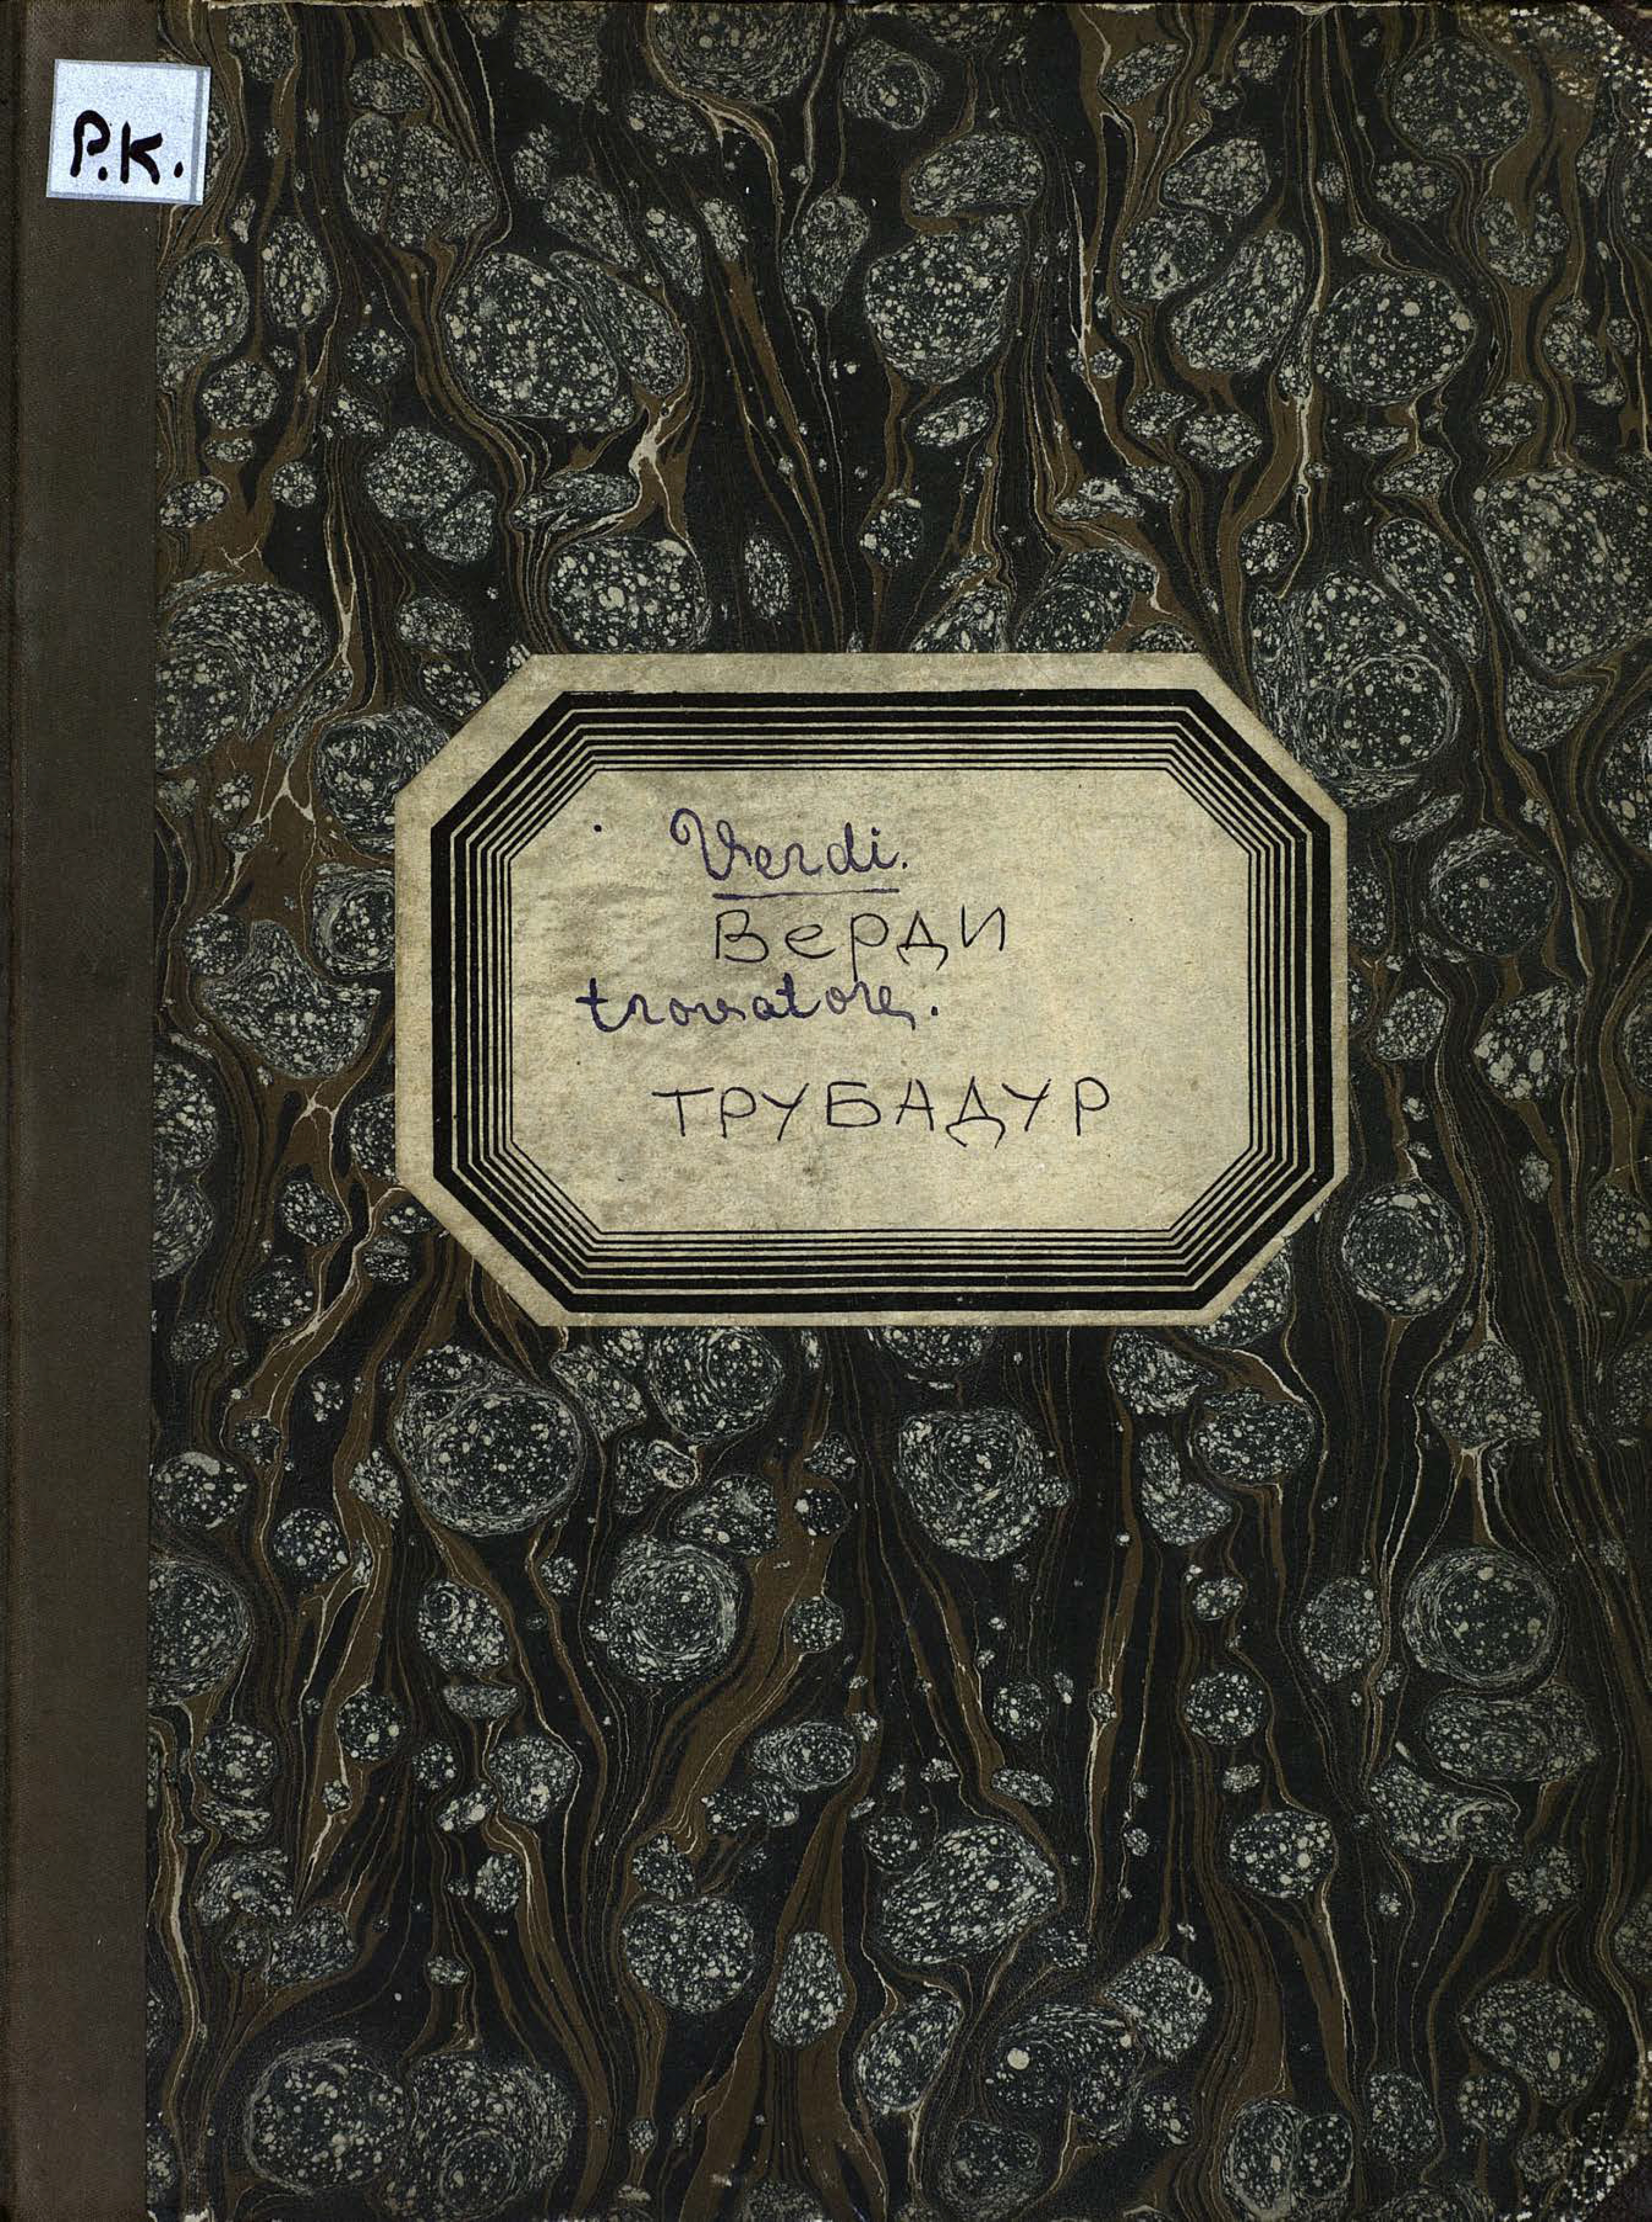 Р.К.
Verdi.
Верди
trovatore.
ТРУБАДУР